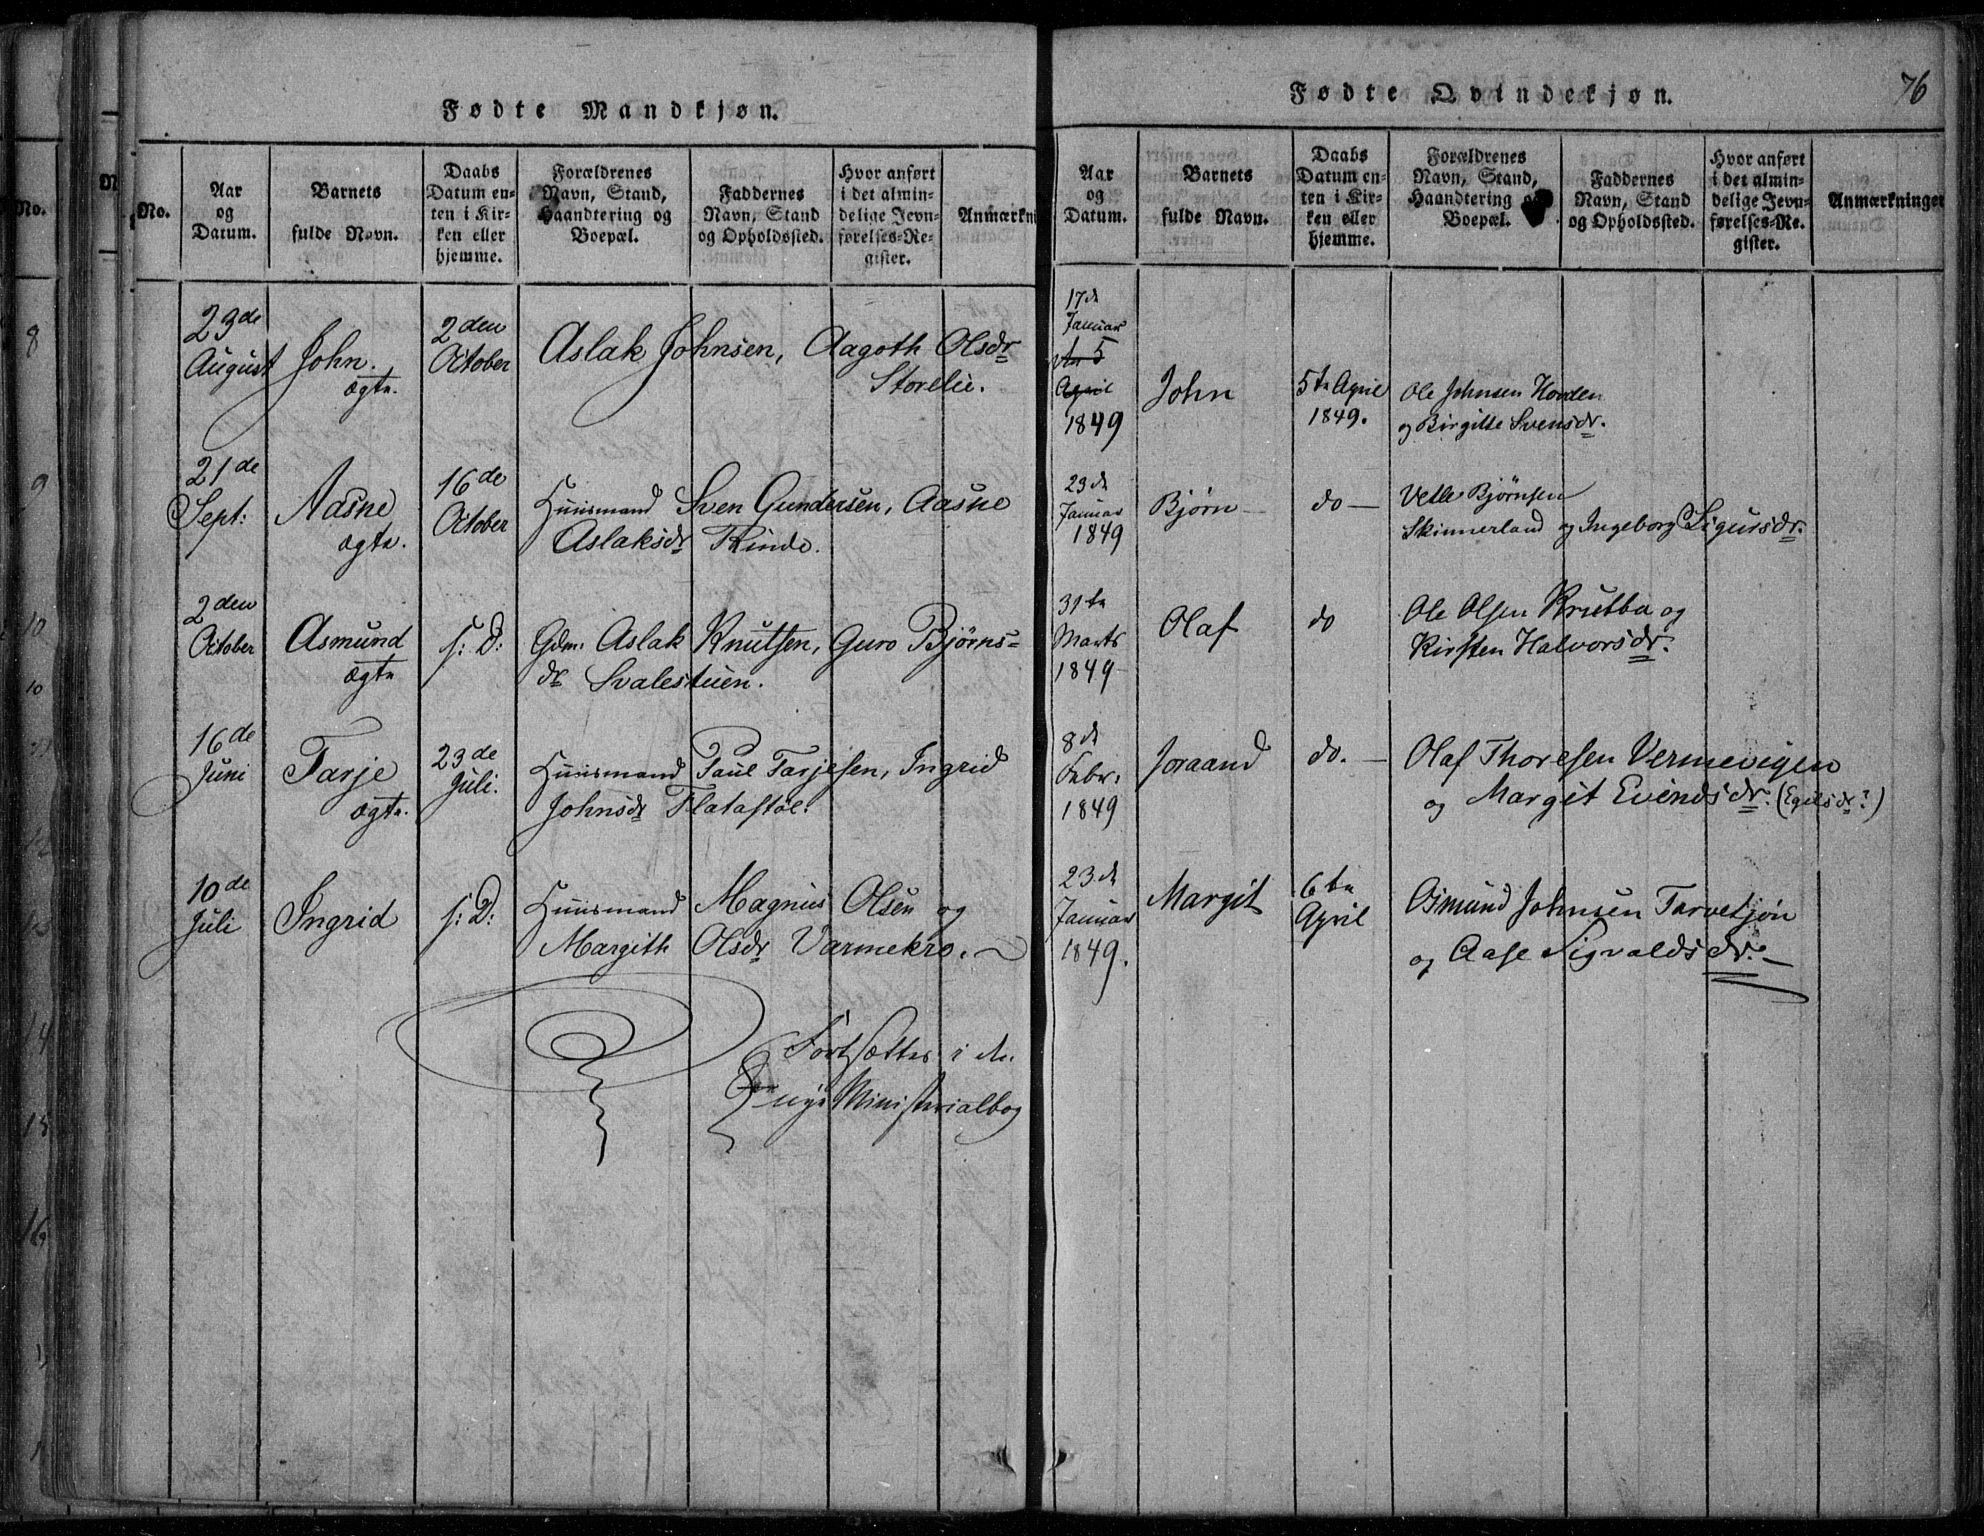 Fødte Mandkjøn.
No.
Aar
og
Datum.
Barnets
fulde Navn.
Daabs
Datum en-
ten i Kir-
ken eller
hjemme.
Forældrenes
Navn, Stand,
Haandtering og
Boepæl.
Faddernes
Navn, Stand
og Opholdssted.
Hvor anført
i det almin-
delige Jevn-
førelses-Re-
gister.
Anmærkni
23de
August
John.
ægte.
2den
October
Aslak Johnsen, Aagoth Olsdr
Storelie.
21de
Sept:
Aasne
ægte.
16de
October
Huusmand Sven Gundersen, Aasne
Aslaksdr Rinde.
2den
October
Asmund
ægte
s: D:
Gdm: Aslak Knutsen, Guro Bjørns=
dr Svalestuen.
16de
Juni
Tarje
ægte.
23de
Juli.
Huusmand Paul Tarjesen, Ingrid
Johnsdr Flatastøl.
10de
Juli
Ingrid
s: D:
Huusmand Magnus Olsen og
Margith Olsdr Varmekro.
Fortsættes i de.
nye Ministerialbog
Fødte Qvindekjøn.
76
Aar
og
Datum.
Barnets
fulde Navn.
Daabs
Datum en-
ten i Kir-
ken eller
hjemme.
Forældrenes
Navn, Stand,
Haandtering
Boepæl.
Faddernes
Navn, Stand
og Opholdssted.
Hvor anført
i det almin-
delige Jevn-
førelses-Re-
gister.
Anmærkninger
17de
Januar
5
April
1849
John
5te April
1849.
Ole Johnsen Hovden
og Birgitte Svensdr.
23de
Januar
1849
Bjørn
do —
Vetle Bjørnsen
Skinnerland og Ingeborg Sigursdr.
31te
Marts
1849
Olaf
do
Ole Olsen Krutba og
Kirsten Halvorsdr.
8de
Febr.
1849
Joraand
do. —
Olaf Thoresen Vermevigen
og Margit Evindsdr. (Egilsdr?)
23de
Januar
1849.
Margit
6te
April
Osmund Johnsen Tarvetjøn
og Aase Sigvaldsdr. —
8
9
10
10
12
13
14
15
16